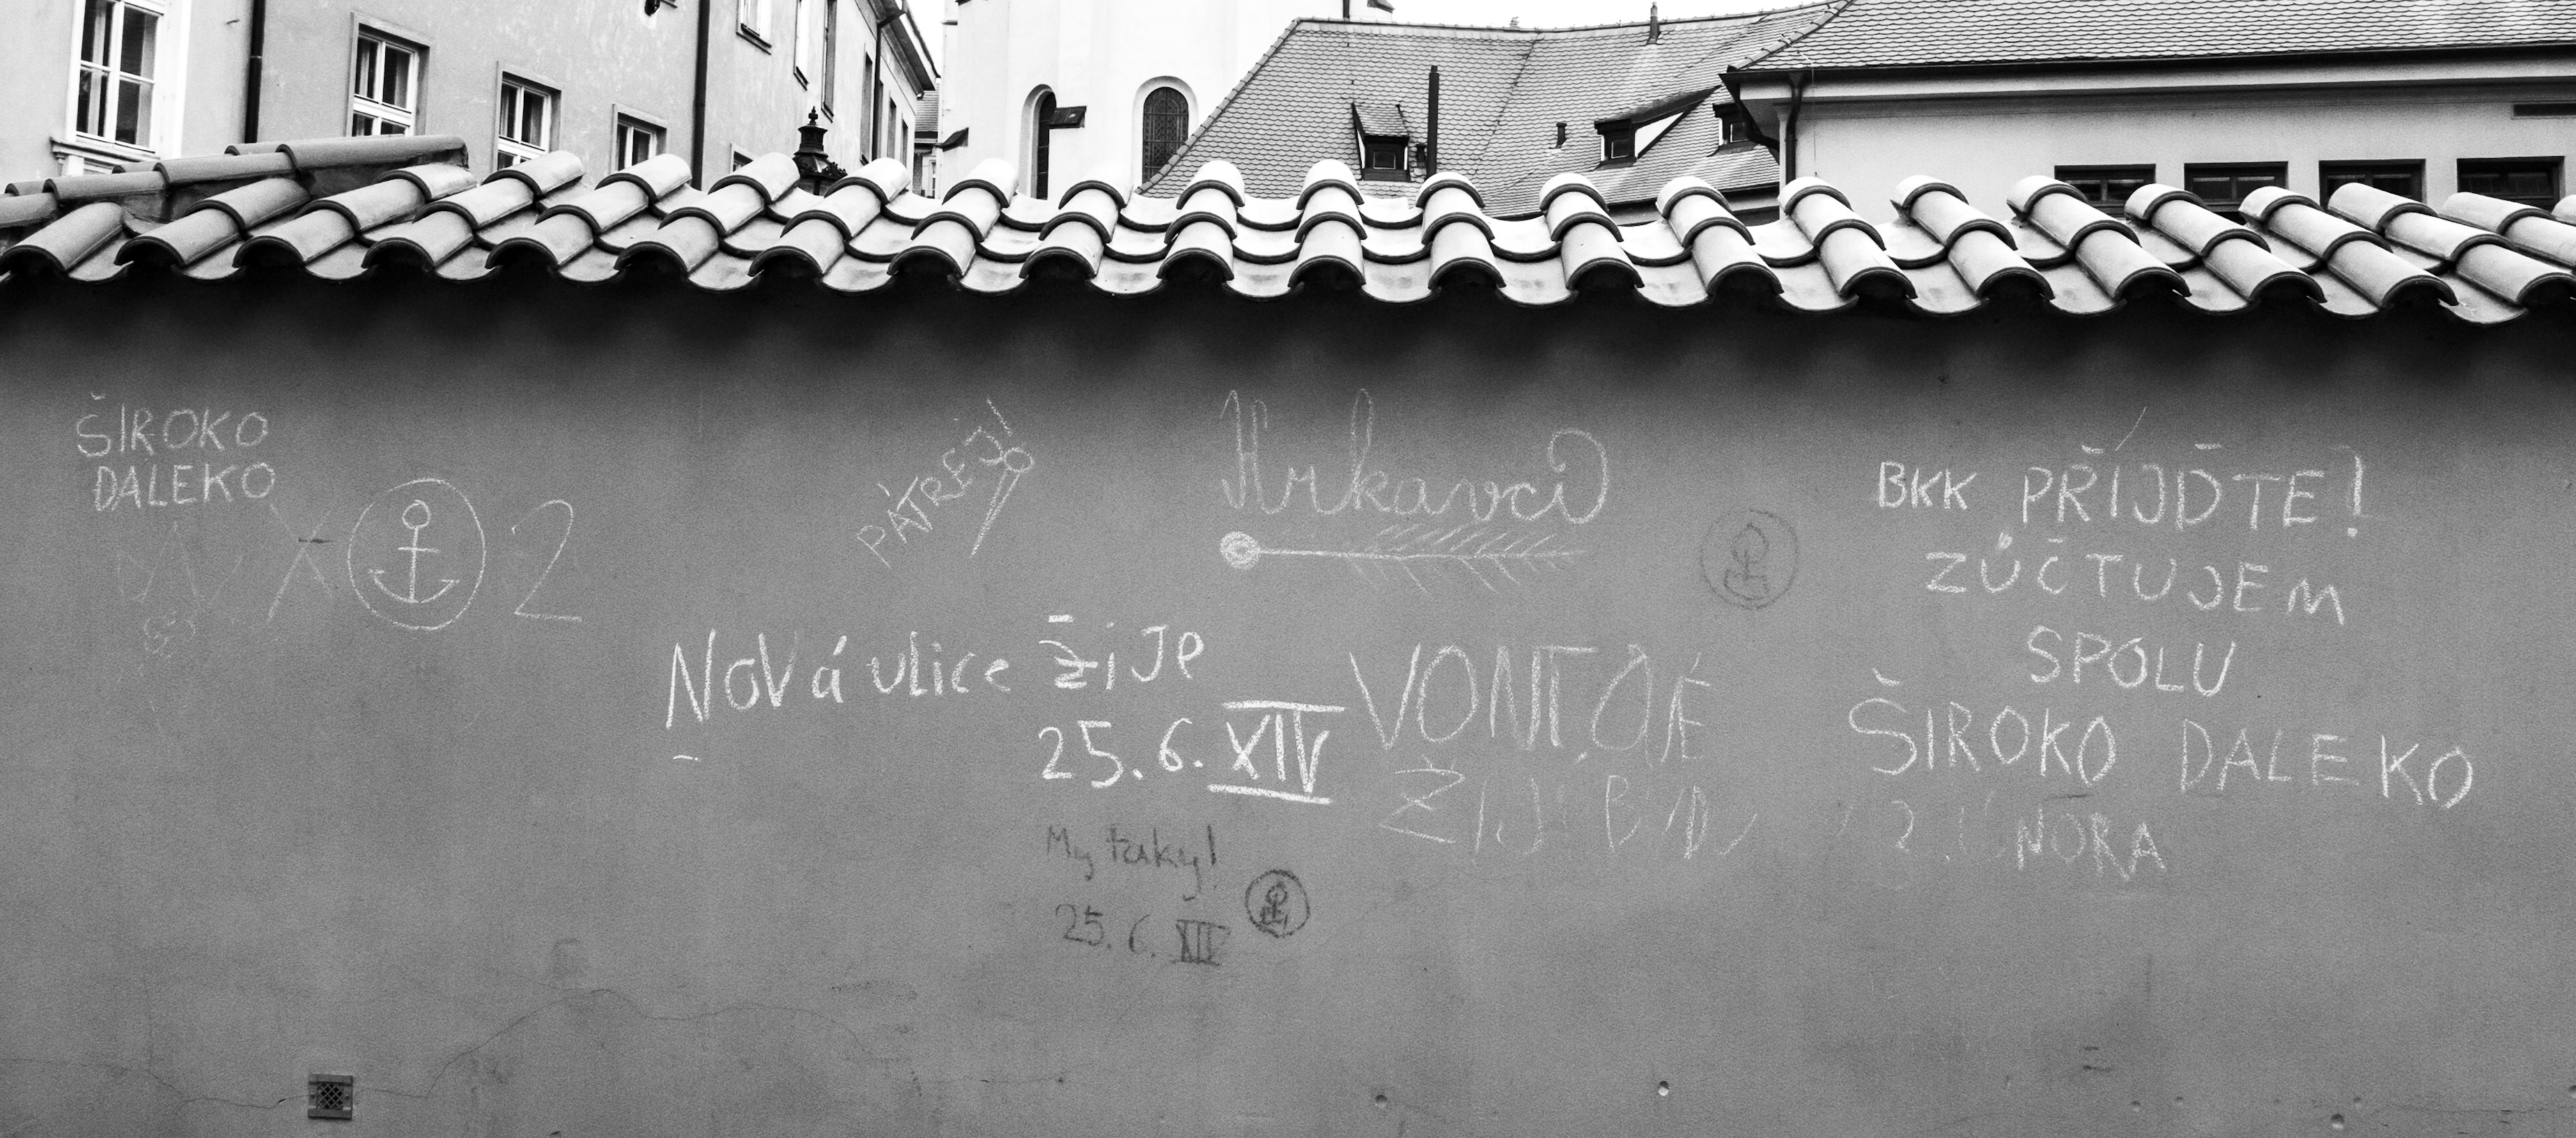 ŠIROKO
DALEKO
2
PÁTREJ!
Hrkavci
BKK PŘÍJĎTE!
ZÚČTUJEM
SPOLU
ŠIROKO DALEKO
2. ÚNORA
Nová ulice žije
25.6. XIV
VONT.OVÉ
My taky!
25. 6. XIV